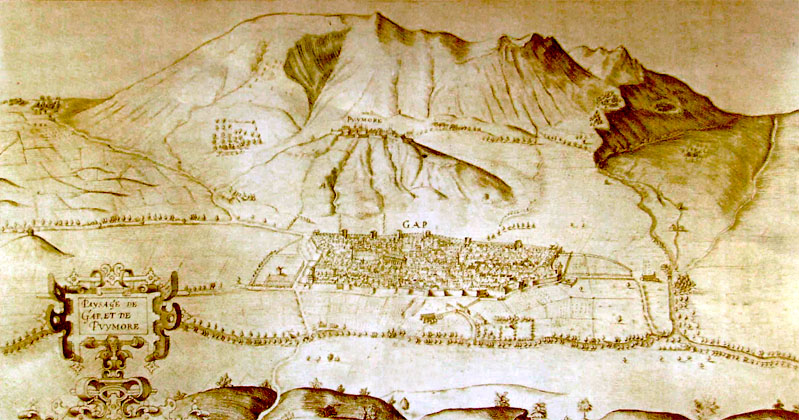 PUYMORE
GAP
PAYSAGE DE
GAP. ET DE
PVYMORE